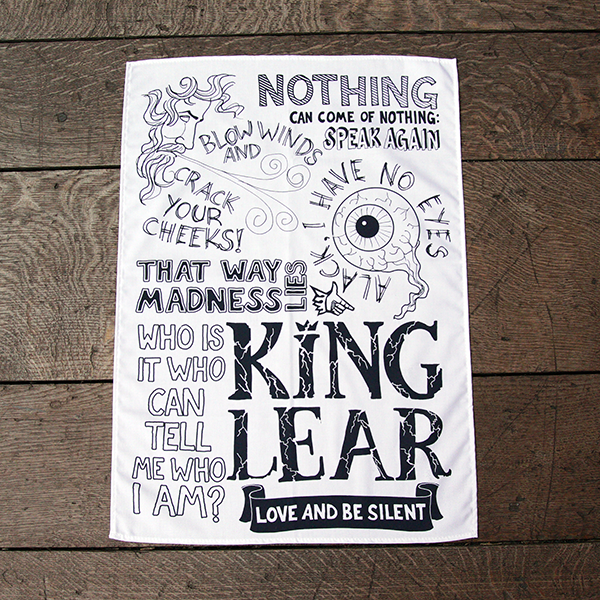 NOTHING
CAN COME OF NOTHING:
SPEAK AGAIN
BLOW WINDS
AND
CRACK
YOUR
CHEEKS!
ALACK, I HAVE NO EYES
THAT WAY
MADNESS LIES
WHO IS
IT WHO
CAN
TELL
ME WHO
I AM?
KING
LEAR
LOVE AND BE SILENT